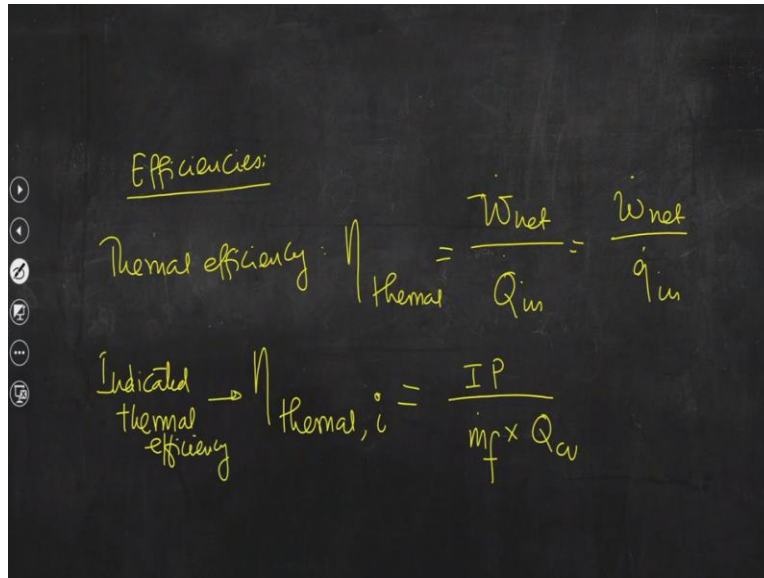 Efficiencies:
Thermal efficiency: η thermal = Ẇnet / Q̇in = ẇnet / q̇in
Indicated thermal efficiency → η thermal, i = IP / ṁf × Qcv